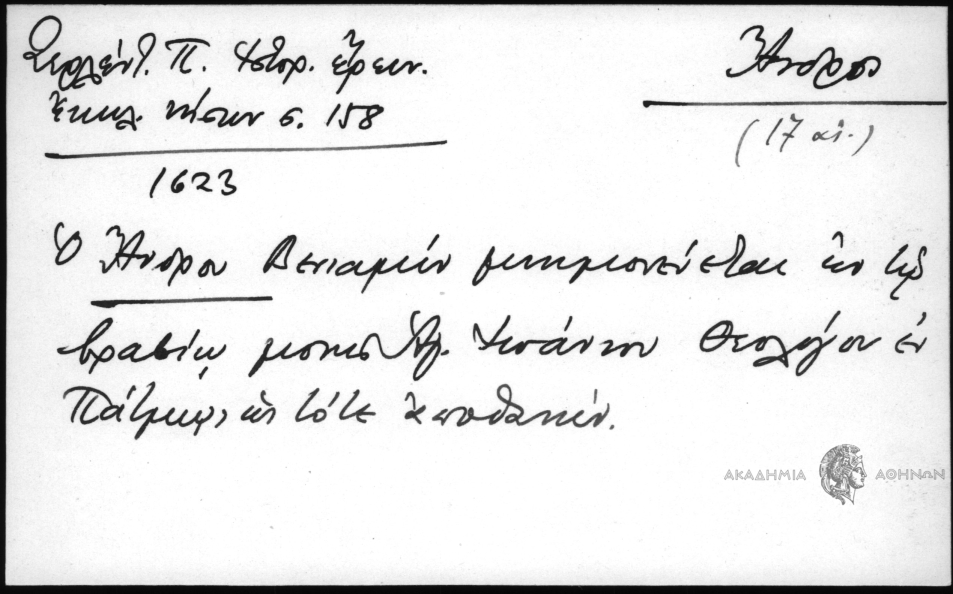 Ζερλέντ. Π. Ἱστορ. ἔρευν.
ἐκκλ. νήσων σ. 158
1623
Ἄνδρος
(17 αἰ.)
Ὁ Ἄνδρου Βενιαμὶν μνημονεύεται ἐν τῷ
βραβίῳ μονῆς Ἁγ. Ἰωάννου Θεολόγου ἐν
Πάτμῳ, ὡς τότε ἀποθανών.
ΑΚΑΔΗΜΙΑ ΑΘΗΝΩΝ